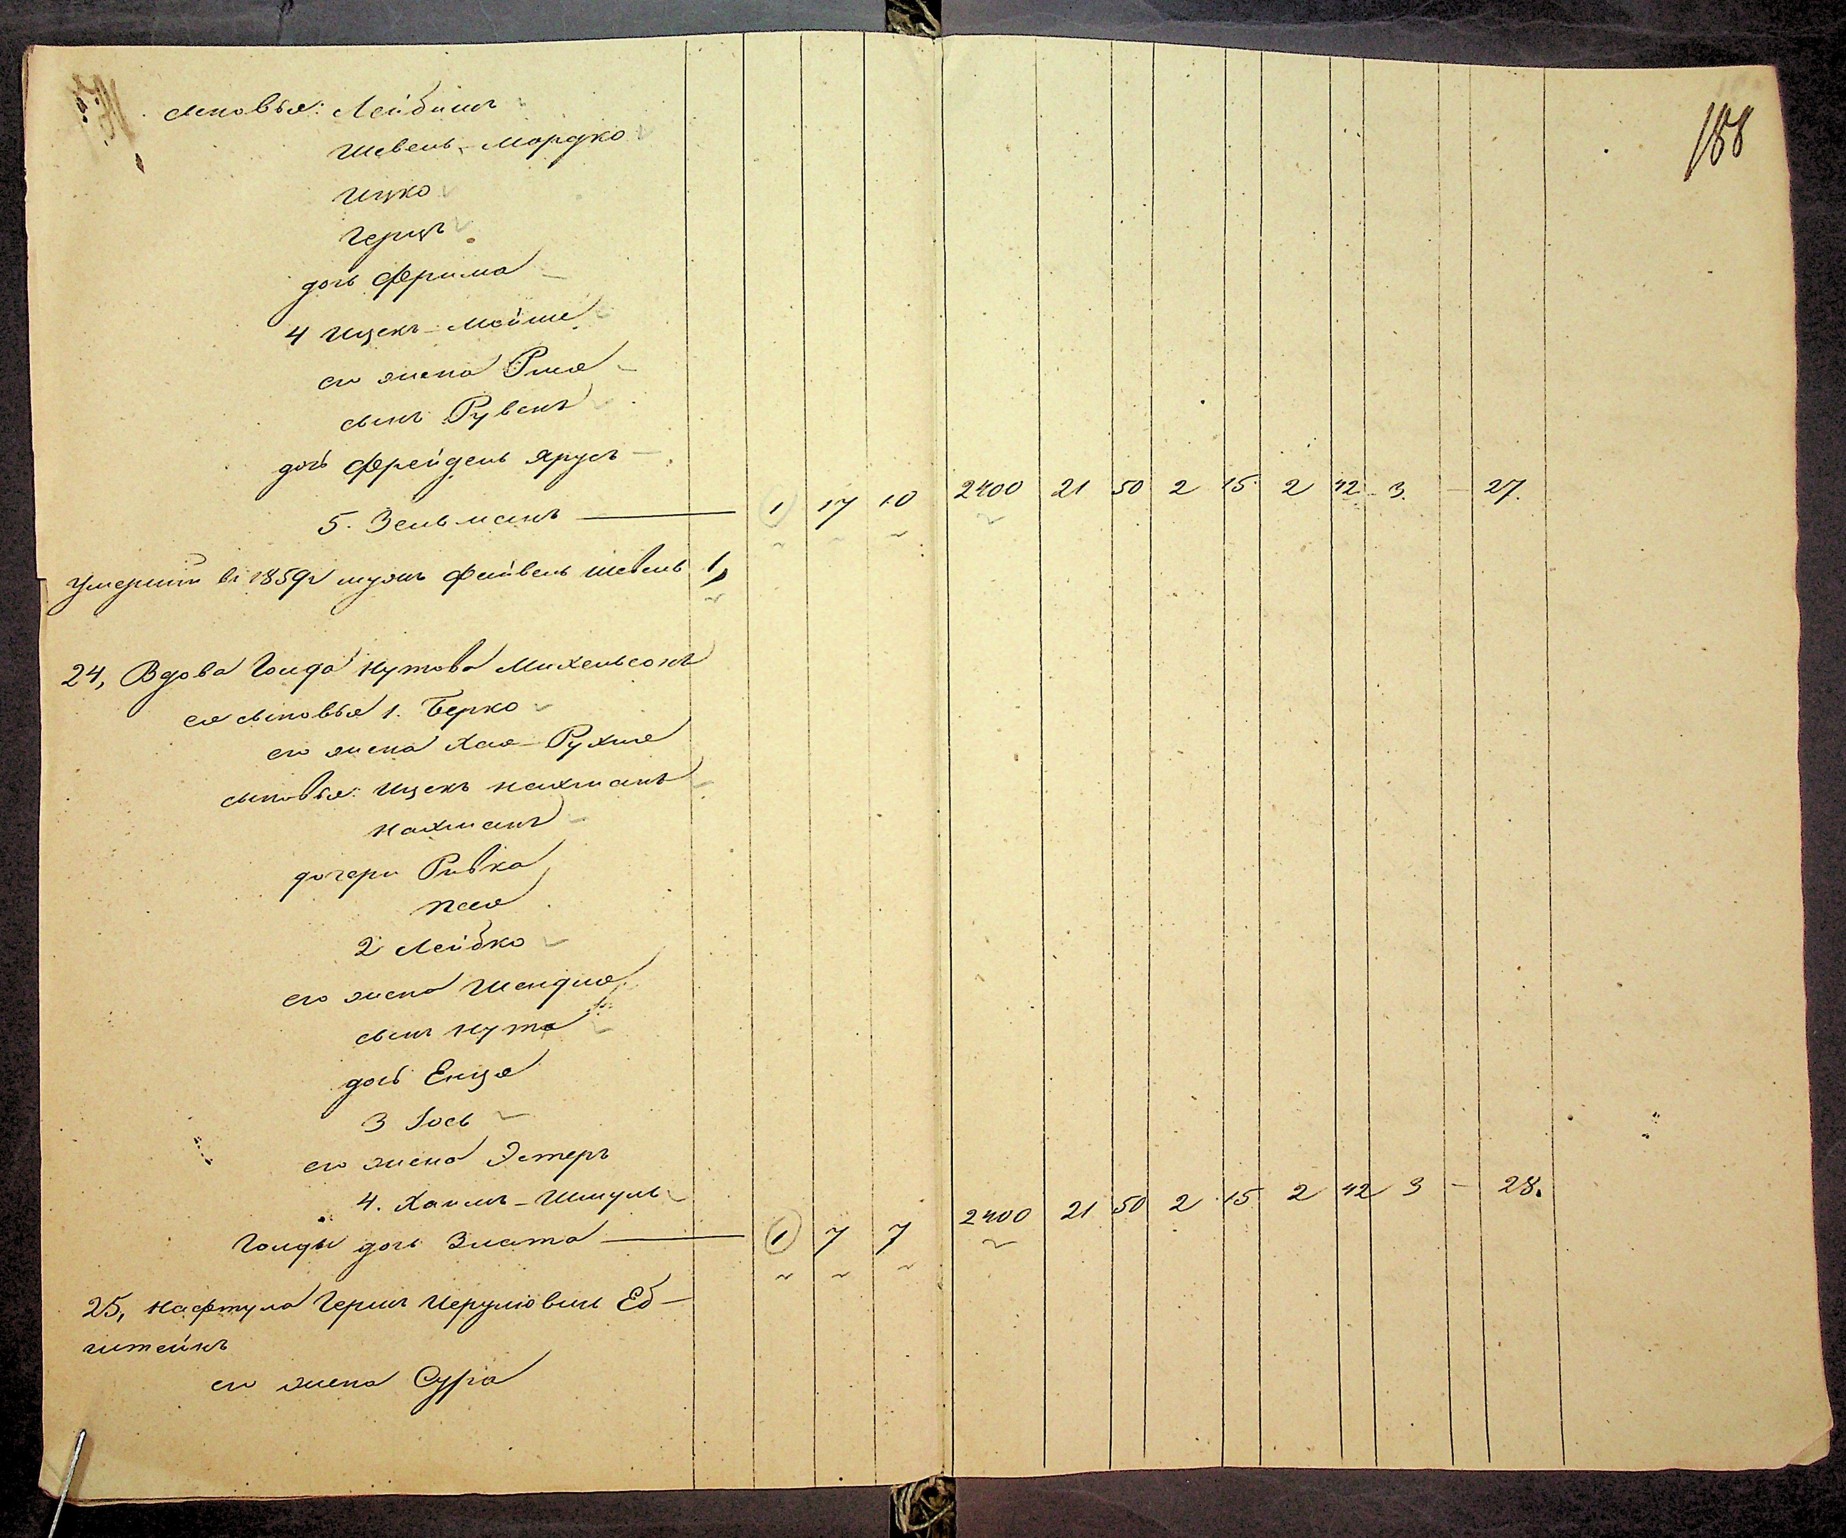 188
сыновья: Лейбишъ
Шевель-Мордко
Ицко
Герцъ
дочь Фрима
4 Ицекъ-Мойше
его жена Рися
сынъ Рувенъ
дочь Фрейдель Ярусъ
5. Зельманъ — 1 17 10 2400 21 50 2 15 2 42 3 — 27.
Умершій въ 1859 г мужъ Файвель Шевель 1,
24, Вдова Голда Нутова Михельсонъ
ея сыновья 1. Берко
его жена Хая-Рухля
сыновья: Ицекъ Нахманъ
Нахманъ
дочери Ривка
Песя
2 Лейбко
его жена Шендля
сынъ Нута
дочь Енця
3 Іось
его жена Эстеръ
4. Хаимъ-Шмуль
Голды дочь Злата — 1 7 7 2400 21 50 2 15 2 42 3 — 28.
25, Нафтула Герш
его жена Сура